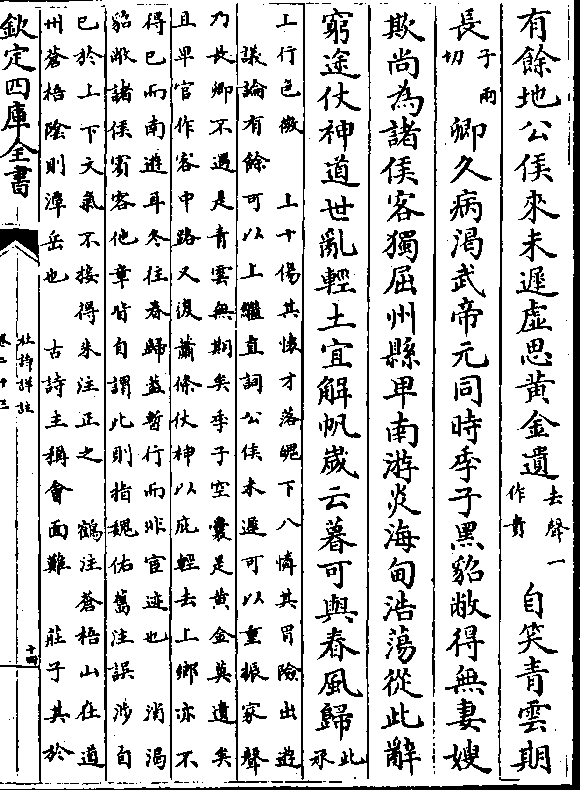 有餘地公侯來未遲虛思黃金遺去聲一作貴自笑青雲期
長子兩切卿久病渴武帝元同時季子黑貂敝得無妻嫂
欺尚為諸侯客獨屈州縣卑南游炎海甸浩蕩從此辭
窮途仗神道世亂輕土宜解帆歲云暮可與春風歸此承
上行色微　上十傷其懷才落魄下八憐其冐險出遊
議論有餘可以上繼直詞公侯未遲可以重振家聲
乃長卿不遇是青雲無期矣季子空囊是黃金莫遺矣
且卑官作客中路又復蕭條仗神以庇輕去上鄉亦不
得已而南遊耳冬往春歸蓋暫行而非宦迹也　消渴
貂敝諸侯賓客他章皆自謂此則指魏佑舊注誤涉自
已於上下文氣不接得朱注正之　鶴注蒼梧山在道
州蒼梧陰則潭岳也　古詩主稱會面難　莊子其於
欽定四庫全書
杜詩詳註
卷二十三
十四